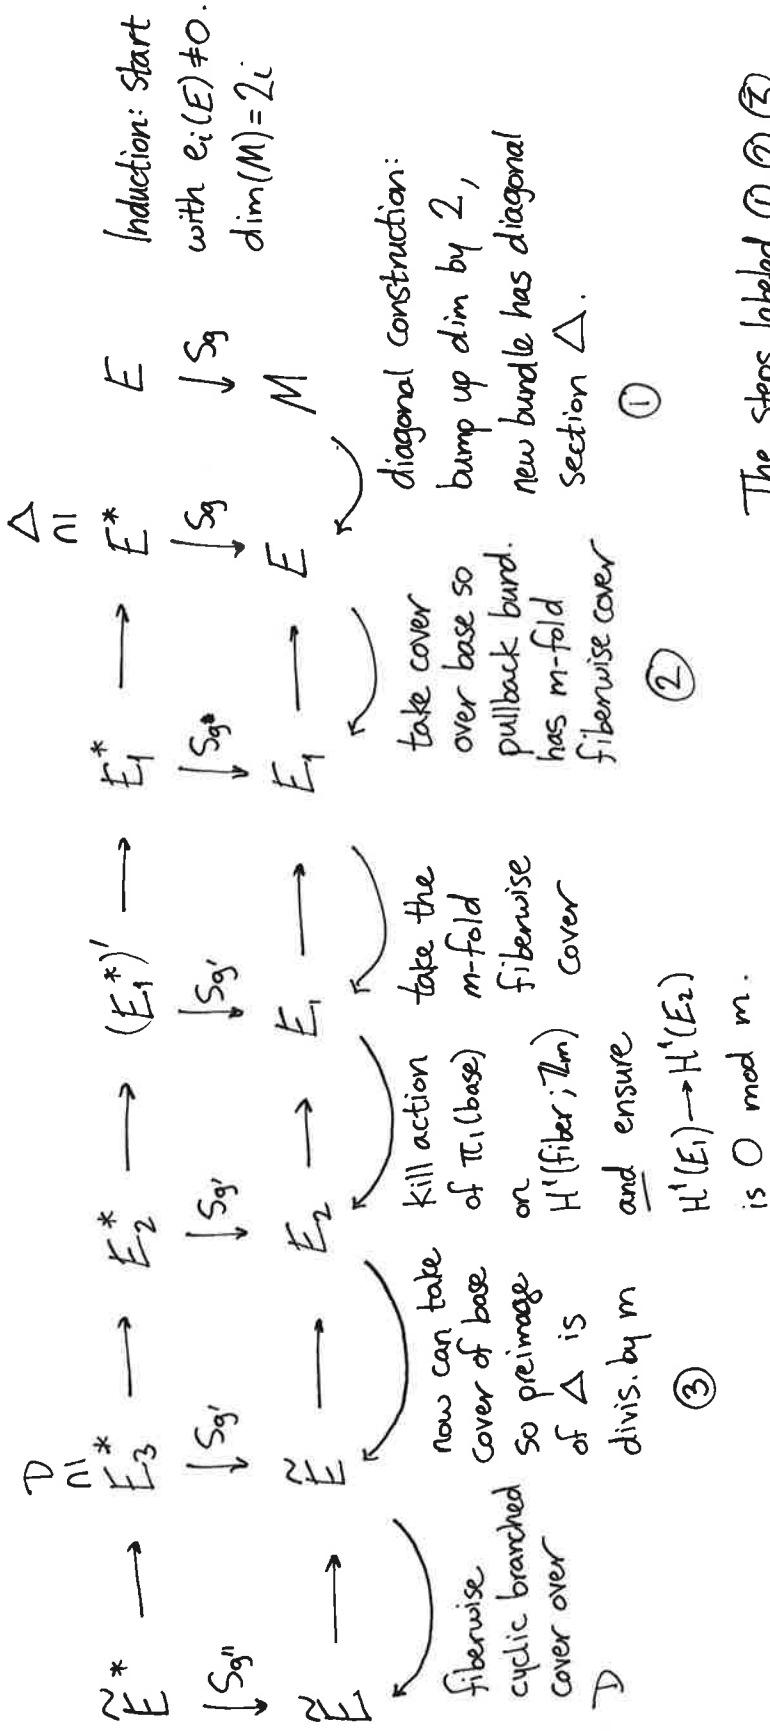 Ẽ* ⟶ E₃* ⟶ E₂* ⟶ (E₁*)' ⟶ E₁* ⟶ E* E
D ⊆ E₃*
Δ ⊆ E*
↓ S_g'' ↓ S_g' ↓ S_g' ↓ S_g' ↓ S_g ↓ S_g ↓ S_g
Ẽ ⟶ Ẽ ⟶ E₂ ⟶ E₁ ⟶ E₁ ⟶ E M
Induction: Start
with eᵢ(E)≠0.
dim(M)=2i
fiberwise
cyclic branched
cover over
D
now can take
cover of base
so preimage
of Δ is
divis. by m
③
kill action
of π₁(base)
on
H¹(fiber; ℤm)
and ensure
H¹(E₁)→H¹(E₂)
is 0 mod m.
take the
m-fold
fiberwise
cover
take cover
over base so
pullback bund.
has m-fold
fiberwise cover
②
diagonal construction:
bump up dim by 2,
new bundle has diagonal
section Δ.
①
The steps labeled ① ② ③